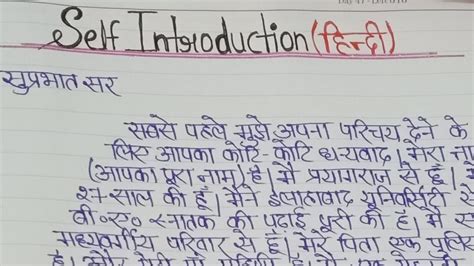 Self Introduction (हिन्दी)
सुप्रभात सर
सबसे पहले मुझे अपना परिचय देने के
लिए आपका कोटि-कोटि धन्यवाद। मेरा ना
(आपका पूरा नाम) है। मैं प्रयागराज से हूँ। मैं
27 साल की हूँ। मैंने इलाहाबाद यूनिवर्सिटी से
बी०ए० स्नातक की पढ़ाई पूरी की है। मैं
मध्यवर्गीय परिवार से हूँ। मेरे पिता एक पुलि